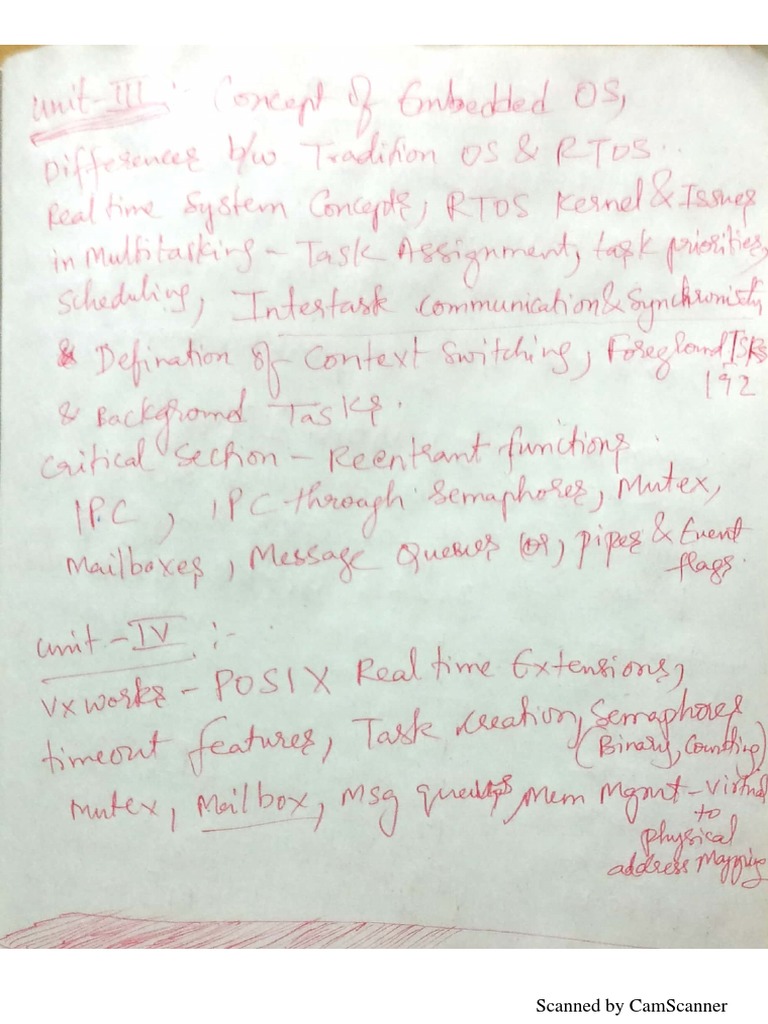 Unit-III :- Concept of Embedded OS,
Differences b/w Tradition OS & RTOS..
Real time System Concepts, RTOS Kernel & Issues
in Multitasking - Task Assignment, task priorities,
Scheduling, Intertask communication & Synchronistn
& Defination of Context Switching, Foreground ISRs
192
& Background Tasks.
Critical Section - Reentrant functions.
IPC, IPC through Semaphores, Mutex,
Mailboxes, Message Queues or, pipes & Event
flags.
Unit-IV :-
Vxworks - POSIX Real time Extensions,
timeout features, Task creation, Semaphores
(Binary, Counting)
Mutex, Mailbox, Msg queues, Mem Mgmt - Virtual
to
physical
address Mapping
Scanned by CamScanner